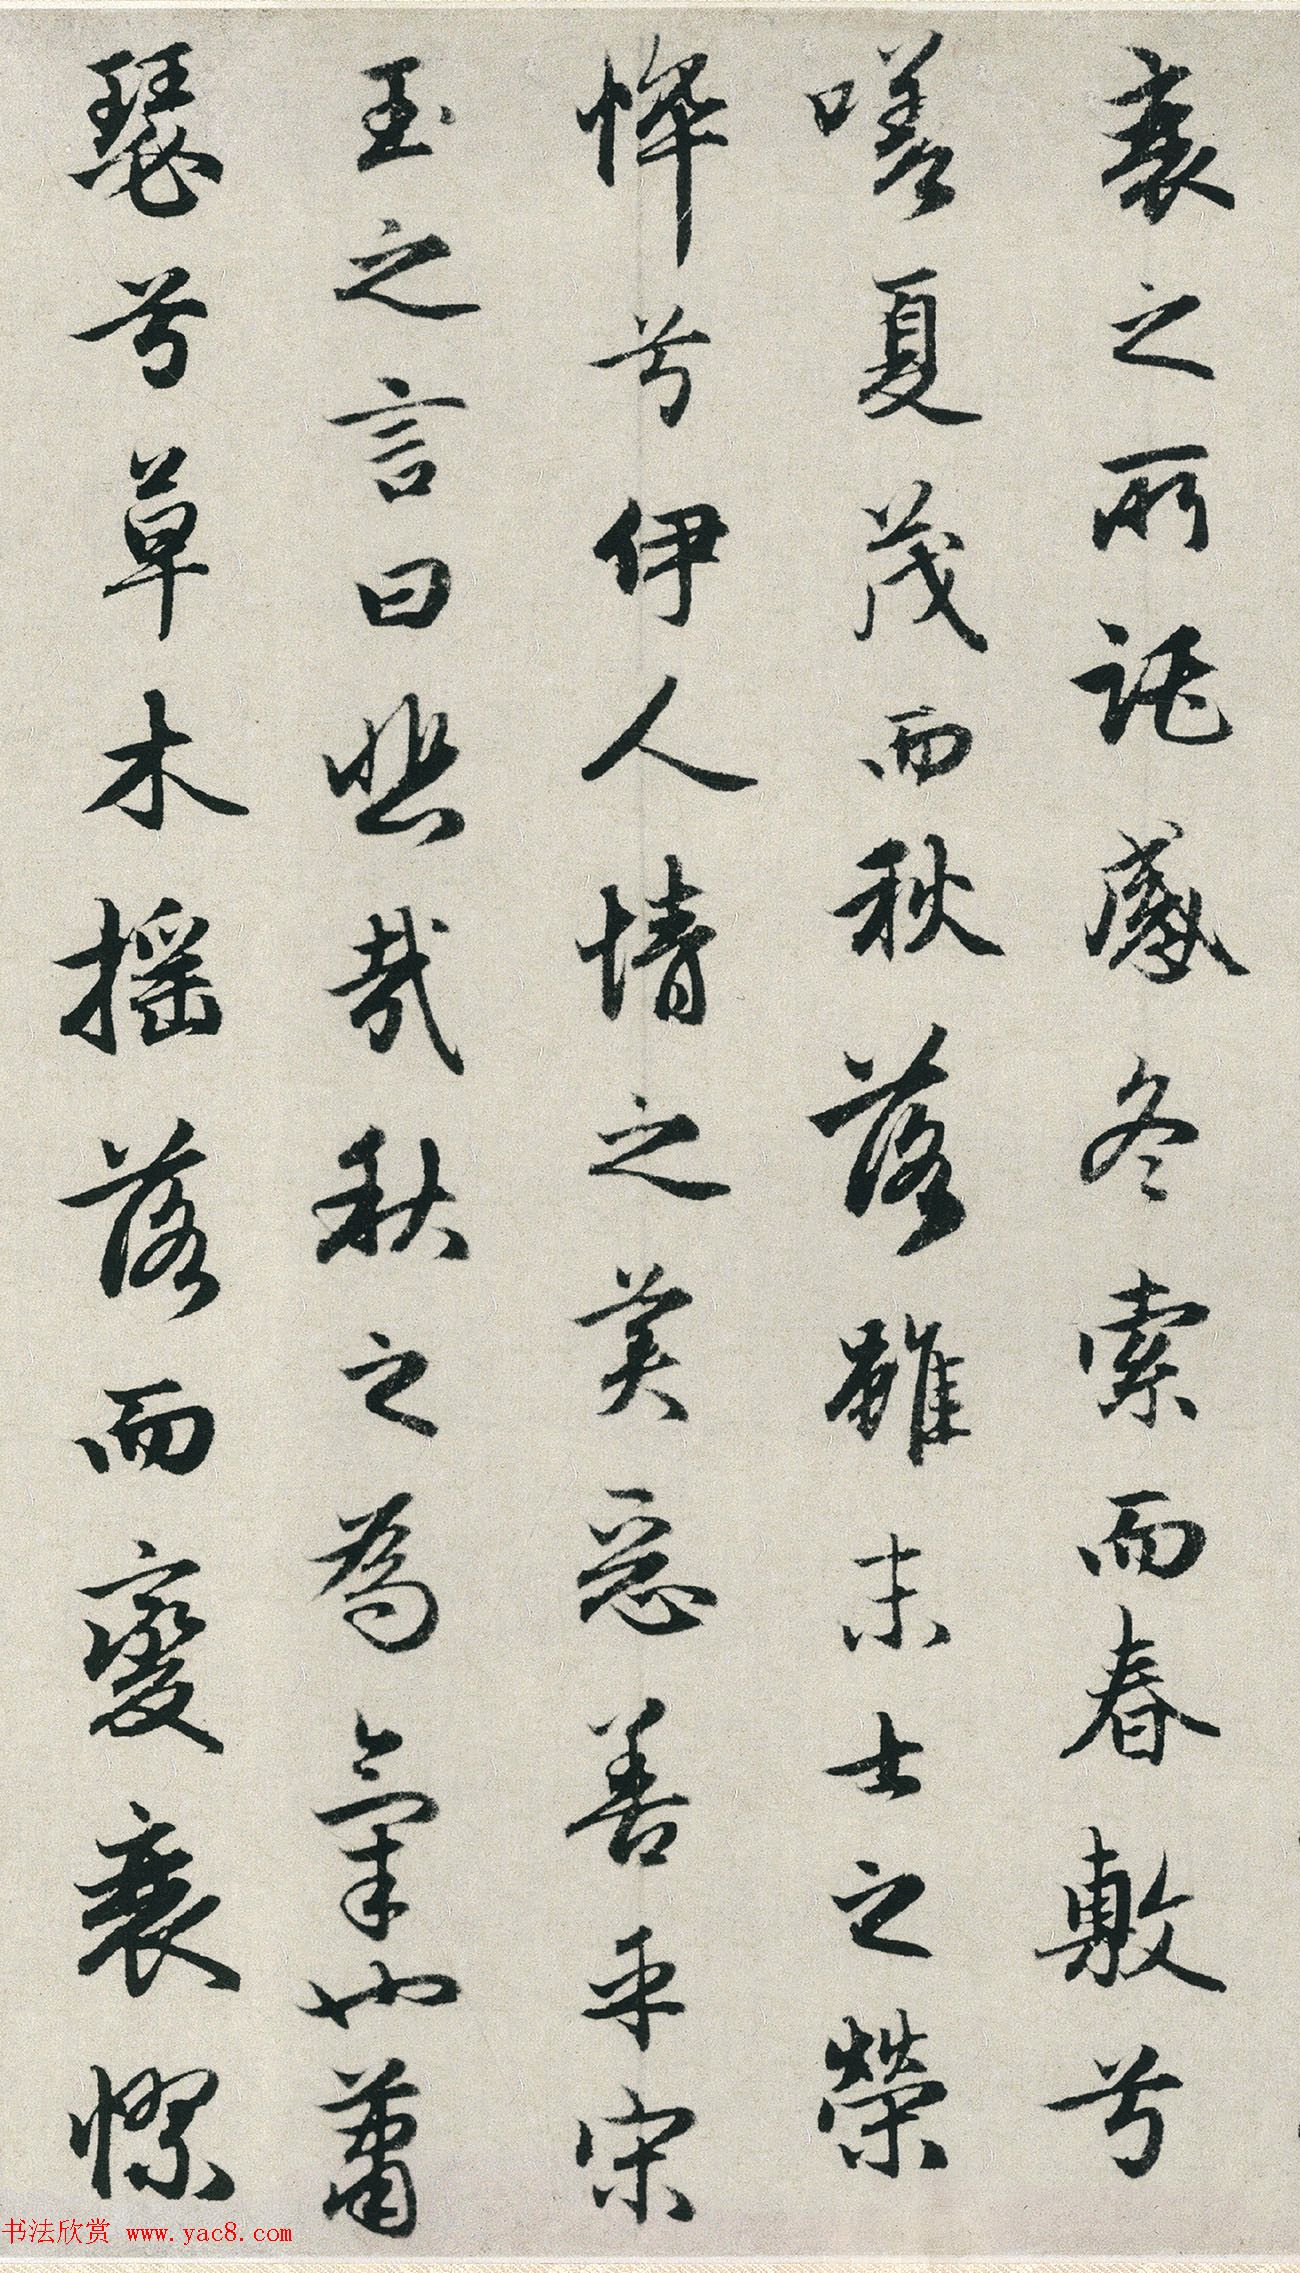 衰之所託感冬索而春敷兮
嗟夏茂而秋落雖末士之榮
悴兮伊人情之美惡善乎宋
玉之言曰悲哉秋之為氣也蕭
瑟兮草木搖落而變衰憀
书法欣赏 www.yac8.com